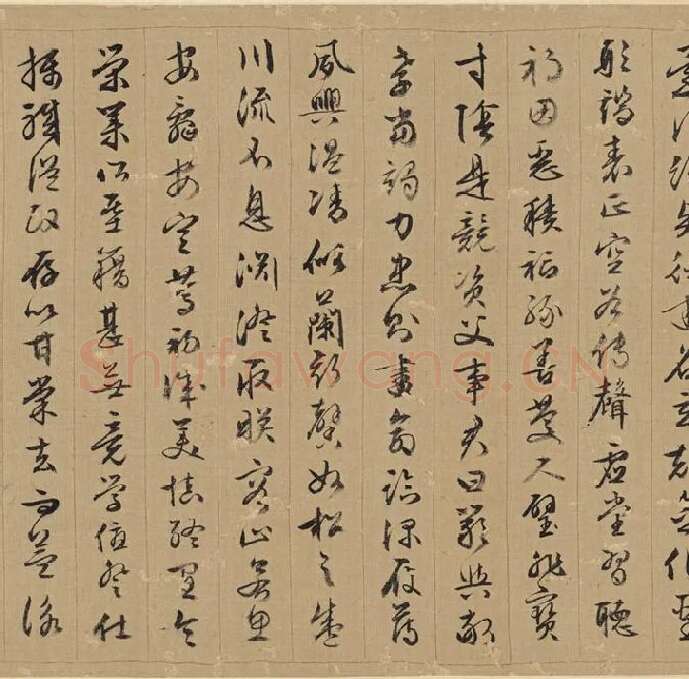 形端表正空谷傳聲虛堂習聽
禍因惡積福緣善慶尺璧非寶
寸陰是競資父事君曰嚴與敬
孝當竭力忠則盡命臨深履薄
夙興溫凊似蘭斯馨如松之盛
川流不息淵澄取暎容止若思
言辭安定篤初誠美慎終宜令
榮業所基籍甚無竟學優登仕
攝職從政存以甘棠去而益詠
Shufawang.CN